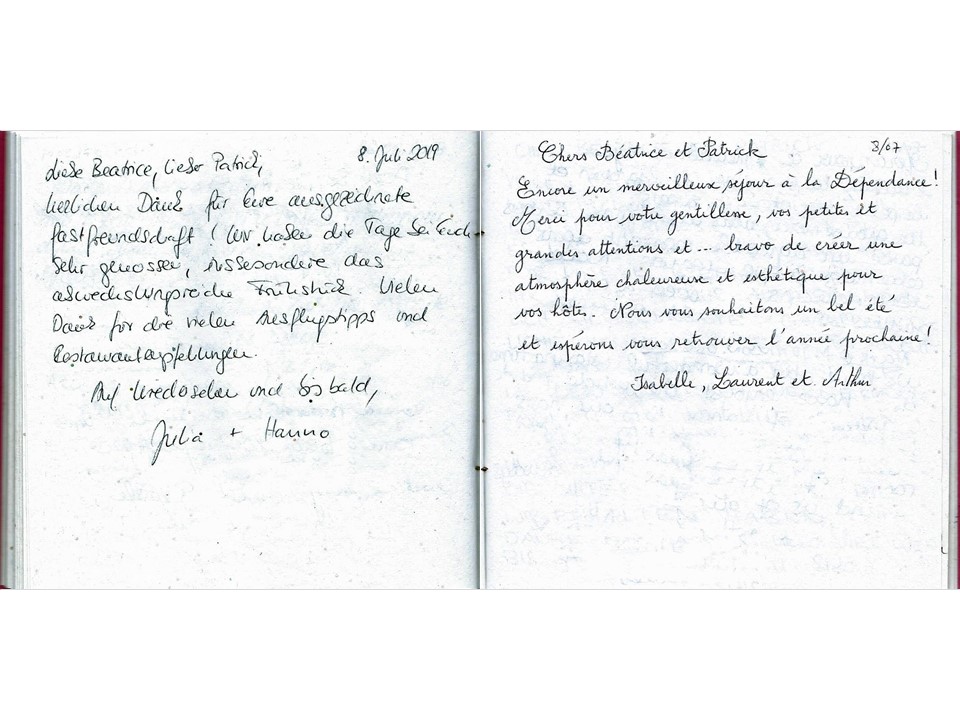 8. Juli 2019
Liebe Beatrice, lieber Patrick,
herzlichen Dank für Eure ausgezeichnete
Gastfreundschaft! Wir haben die Tage bei Euch
sehr genossen, insbesondere das
abwechslungsreiche Frühstück. Vielen
Dank für die vielen Ausflugstipps und
Restaurantempfehlungen.
Auf Wiedersehen und bis bald,
Julia + Hanno
3/07
Chers Béatrice et Patrick
Encore un merveilleux séjour à la Dépendance!
Merci pour votre gentillesse, vos petites et
grandes attentions et... bravo de créer une
atmosphère chaleureuse et esthétique pour
vos hôtes. Nous vous souhaitons un bel été
et espérons vous retrouver l'année prochaine!
Isabelle, Laurent et Arthur